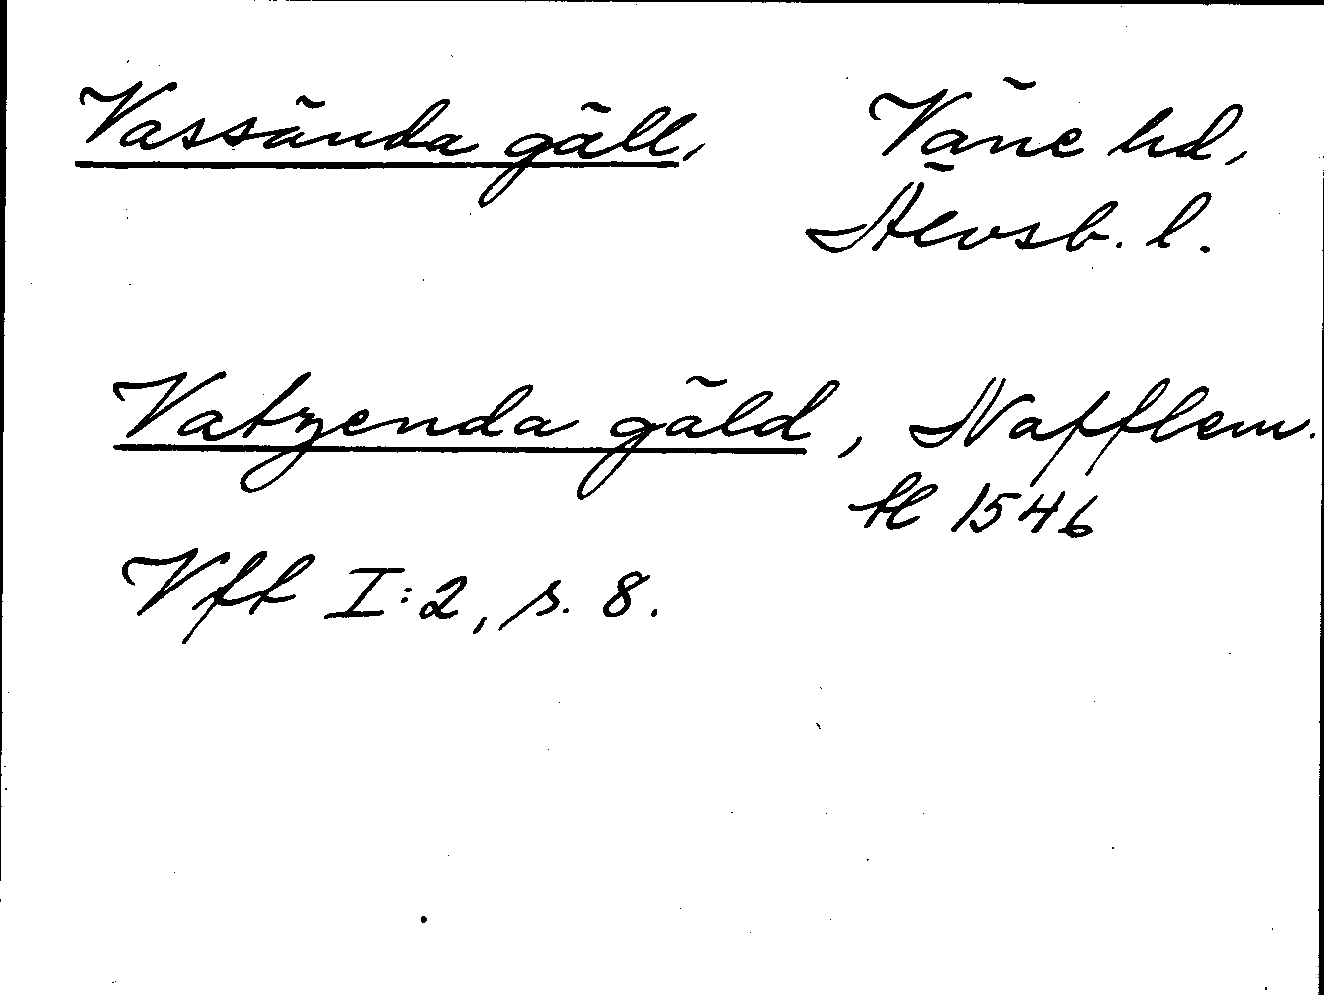 Vassända gäll, Väne hd,
Älvsb. l.
Vatzenda gäld, Nafflem.
1546
Vft I:2, s. 8.